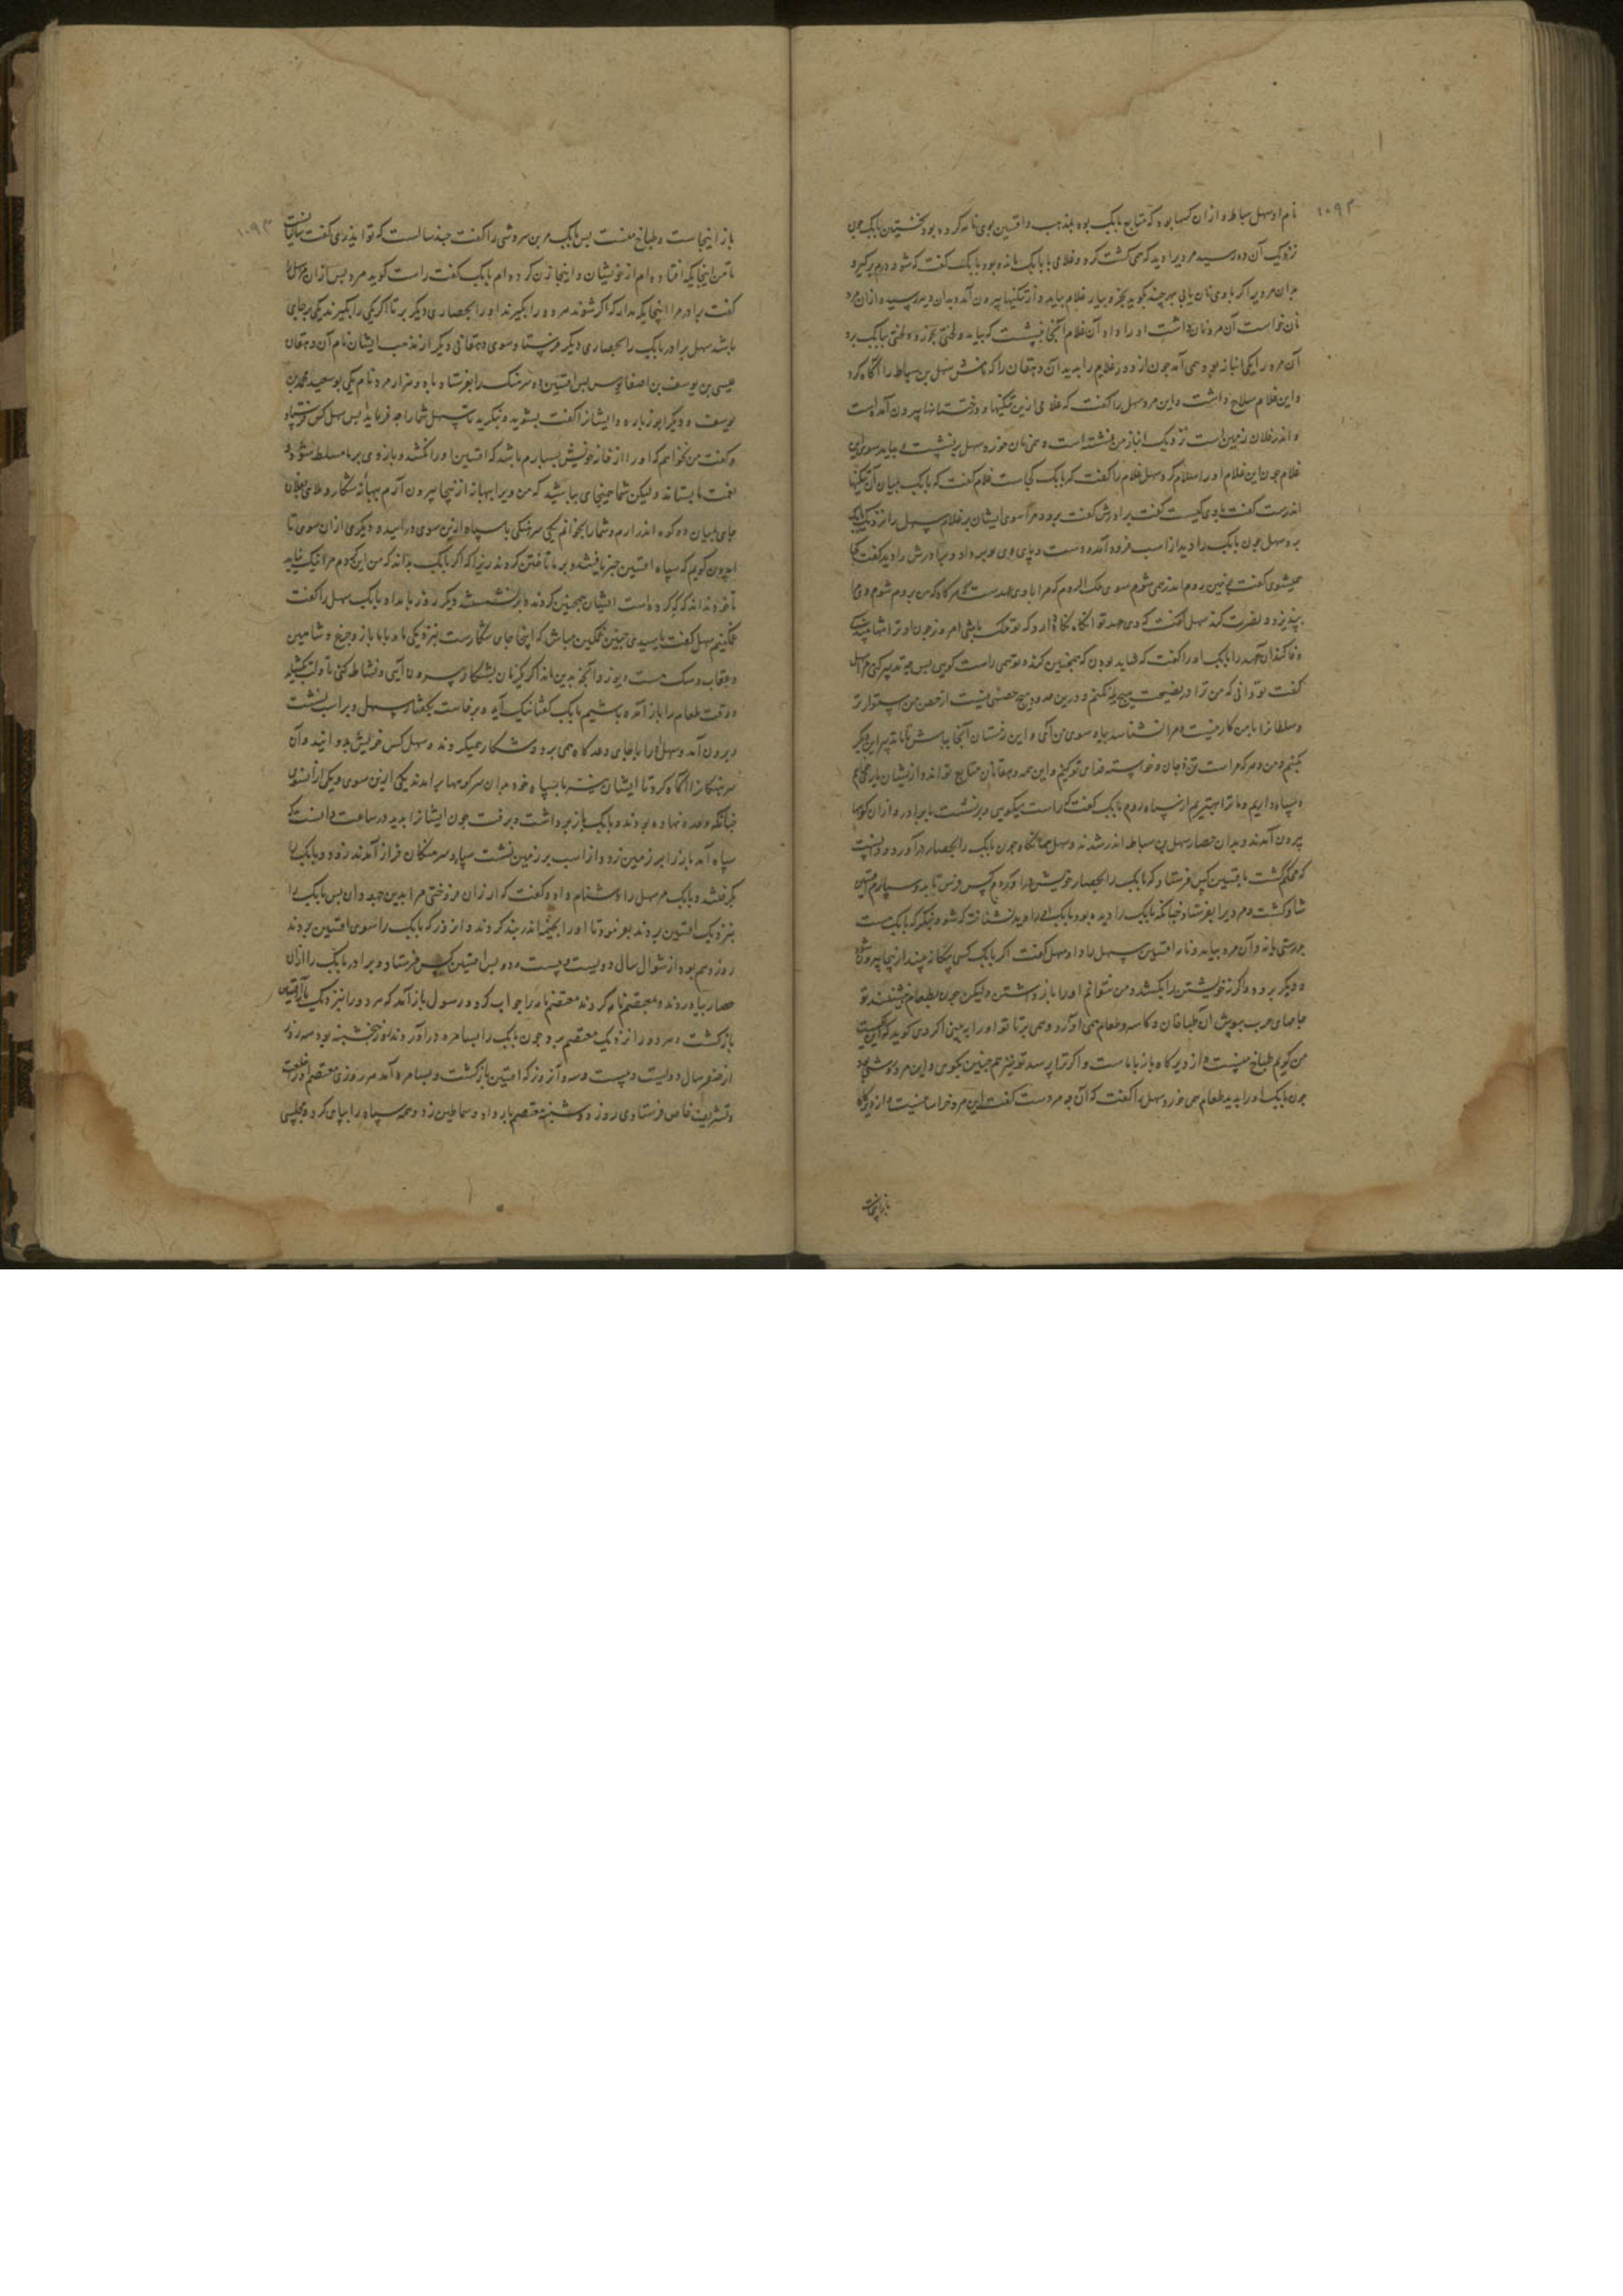 نام او سهل سباط و از ان کسها بود که متابع بابک بوده بمذهب و افشین بوی نامه کرده بود نخستین بابک چون
نزدیک آن ده رسید مردیرا دید که همی کشت کرد و غلامی با بابک مانده بود بابک گفت که شو و درم برگیر و
بدان مرد بر اگر با وی نان یابی بهر چند بگوید بخر و بیار غلام بیامد و از تنگیها بیرون آمد و بدان دیه رسید و از ان مرد
نان خواست آن مرد نان داشت او را داد آن غلام آنجا بنشست که بیاید و لختی بخورد و لختی ببابک برد
آن مرد را یکی انباز بود همی آمد چون از دور غلام را بدید آن دهقان را که سهل بن سباط را آگاه کرد
و این غلام سلاح داشت و این مرد سهل را گفت که غلامی ازین تنگیها و درختستانها بیرون آمده است
و اندر فلان زمین است نزدیک انباز من نشسته است و همی نان خورد سهل بر نشست و بیامد سوی این
غلام چون این غلام او را سلام کرد سهل غلام را گفت که بابک کجاست غلام گفت که بابک بمیان آن تنگیها
اندرست گفت با وی کیست گفت برادرش گفت برو و مرا سوی ایشان بر غلام سهل را نزدیک بابک
برد سهل چون بابک را دید از اسب فرود آمد و دست و پای وی بوسه داد و برادرش را دید گفت کجا
همیشوی گفت بزمین روم اندر همی شوم سوی ملک الروم که مرا با وی عهدست که هرگاه که من بروم شوم وی مرا
بپذیرد و نصرت کند سهل گفت که وی عهد تو انگاه نگاه دارد که تو ملک باشی امروز چون او ترا تنها بیند
وفا کند آن عهد را بابک او را گفت که شاید بودن که همچنین کند و تو همی راست گویی پس چه تدبیر کنی سهل
گفت تو دانی که من ترا در نصیحت هیچ حیله نکنم و درین حدود هیچ حصنی نیست از حصن من استوارتر
و سلطانرا با من کار نیست و مرا نشناسد بیا سوی من آی و این زمستان آنجا بباش تا تدبیر این دیگر
بکنیم و من و هر که مراست تن و جان و خواسته فدای تو کنیم و این همه دهقانان متابع تواند و از ایشان یار خواهیم
و سپاه داریم و ما ترا بهتریم از سپاه روم بابک گفت که راست میگویی و بر نشست با برادر و از ان کوهها
بیرون آمدند و بدان حصار سهل بن سباط اندر شدند و سهل همانگاه چون بابک را بحصار در آورد و دانست
که محکم گشت بافشین کس فرستاد که بابک را بحصار خویش در آوردم کس فرست تا بدو سپارم افشین
شاد گشت و مردیرا بفرستاد چنانکه بابک را دیده بود و بابک او را ندیده بود و نشناخت که شو و بنگر که بابک است
بدرستی یا نه و آن مرد بیامد و نامه افشین بسهل داد و سهل گفت اگر بابک کسی بیگانه بیند از اینجا بیرون شود
و دیگر برود و اگر نه خویشتن را بکشد و من نتوانم او را باز داشتن ولیکن چون بطعام بنشیند تو
جامهای چرب بپوش آن طباخان و کاسه و طعام همی آورد و همی بر تا تو او را ببینی اگر وی گوید که این کیست
من گویم طباخ منست و از دیرگاه باز با ماست و اگر ترا پرسد تو نیز هم چنین بگوی و این مرد
چون بابک او را بدید طعام همی خورد و سهل را گفت که آن چه مردست گفت این مرد خراسانیست و از دیرگاه
باز اینجاست
باز اینجاست و طباخ منست پس بابک مر بن سروشی را گفت چند سالست که تو ایدری گفت
تا من اینجایگه افتاده ام از خویشان و اینجا زن کرده ام بابک گفت راست گوید مرد پس از ان سهل را
گفت برادر مرا اینجایگه مدار که اگر شوند هر دو را بگیرند او را بحصاری دیگر بر تا اگر یکی را بگیرند یکی بر جای
باشد سهل برادر بابک را بحصاری دیگر فرستاد سوی دهقانی دیگر از مذهب ایشان نام آن دهقان
عیسی بن یوسف بن اصفانوس پس افشین دو سرهنگ را بفرستاد با دو هزار مرد نام یکی بو سعید محمد بن
یوسف و دیگر ابوزباره و ایشانرا گفت بشوید و بنگرید تا سهل شما را چه فرماید پس سهل کس فرستاد
و گفت من نخواهم که او را از خانه خویش بسپارم باشد که افشین او را نکشد و باز وی بر ما مسلط شود و
نعمت ما بستاند ولیکن شما همینجای بباشید که من ویرا بهبهانه از اینجا بیرون آرم ببهانه شکار و بفلان
جای بمیان دو کوه اندر آرم و شما را بخوانم یکی سرهنگی با سپاه ازین سوی در آیید و دیگری از ان سوی تا
ایدون گویم که سپاه افشین خبر یافتند و بر ما تاختن کردند زیرا که اگر بابک بداند که من این کردم مرا نیک نیاید
تا خود نداند که که کرده است ایشان همچنین کردند و بر نشستند دیگر روز بامداد بابک سهل را گفت
غمگینم سهل گفت یا سیدی چنین غمگین مباش که اینجا جای شکارست بنزدیکی ما و با ما باز و چرغ و شاهین
و عقاب و سگ هست و یوز و آنچه بدین ماند اگر یک زمان بشکار بیرون آیی و نشاط کنی تا دلت بگشاید
وقت طعام را باز آمده باشیم بابک گفتا نیک آید و برخاست بگفتار سهل و بر اسب نشست
و بیرون آمد و سهل او را بجای وعده گاه همی برد و شکار همیکردند و سهل کس خویش بدوانید و آن
سرهنگانرا آگاه کرد تا ایشان با سپاه خود بدان سر کوهها بر آمدند یکی ازین سوی و یکی از ان سوی
چنانکه وعده نهاده بودند و بابک باز برداشت و برفت چون ایشانرا بدید در ساعت دانست که
سپاه آمد باز را بر زمین زد و از اسب بر زمین نشست سپاه و سرهنگان فراز آمدند زود و بابک را
بگرفتند و بابک مر سهل را دشنام داد و گفت که ارزان فروختی مرا بدین جهودان پس بابک را
بنزدیک افشین بردند بفرمود تا او را آنجا اندر بند کردند و از روز که بابک را سوی افشین بردند
روز دهم بود از شوال سال دویست و بیست و دو پس افشین کس فرستاد و برادر بابک را از ان
حصار بیاوردند و بمعتصم نامه کردند معتصم نامه را جواب کرد و رسول باز آمد که هر دو را نزدیک من آر افشین
باز گشت و هر دو را نزدیک معتصم برد چون بابک را بسامره در آوردند روز پنجشنبه بود سه روز
از صفر سال دویست و بیست و سه و آن روز که افشین باز گشت و بسامره آمد هر روزی معتصم او را خلعت
و تشریف خاص فرستادی روز دوشنبه معتصم بار داد و سماطین زد و همه سپاه را بپای کرد و مجلسی